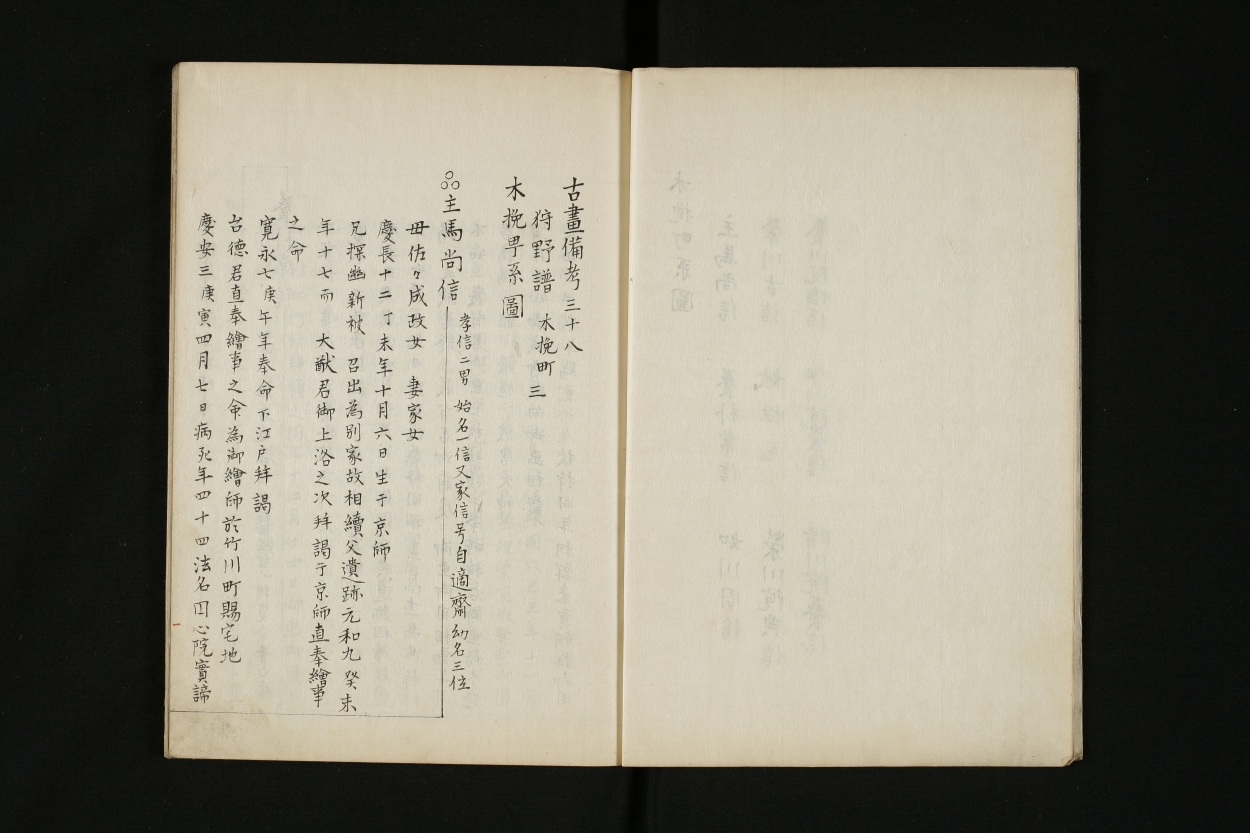 古畫備考三十八
狩野譜 木挽町 三
木挽町系圖
主馬尚信 孝信二男 始名一信又家信号自適齋幼名三位
母佐々成政女 妻家女
慶長十二丁未年十月六日生于京師
兄探幽新被 召出為別家故相續父遺跡元和九癸未
年十七而 大猷君御上洛之次拜謁于京師直奉繪事
之命
寛永七庚午年奉命下江戸拜謁
台德君直奉繪事之命為御繪師於竹川町賜宅地
慶安三庚寅四月七日病死年四十四法名円心院實諦